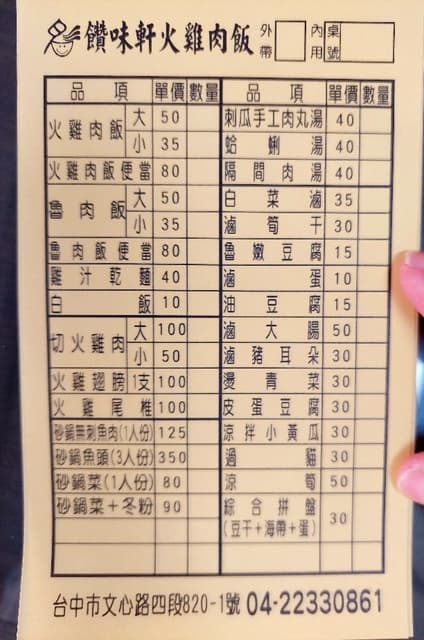 饡味軒火雞肉飯 外帶 內用 桌號
品項 單價 數量 品項 單價 數量
火雞肉飯 大 50 刺瓜手工肉丸湯 40
小 35 蛤蜊湯 40
火雞肉飯便當 80 隔間肉湯 40
魯肉飯 大 50 白菜滷 35
小 35 滷筍干 30
魯肉飯便當 80 魯嫩豆腐 15
雞汁乾麵 40 滷蛋 10
白飯 10 油豆腐 15
切火雞肉 大 100 滷大腸 50
小 50 滷豬耳朵 30
火雞翅膀 1支 100 燙青菜 30
火雞尾椎 100 皮蛋豆腐 30
砂鍋無刺魚肉(1人份) 125 涼拌小黃瓜 30
砂鍋魚頭(3人份) 350 過貓 30
砂鍋菜(1人份) 80 涼筍 50
砂鍋菜+冬粉 90 綜合拼盤 30
(豆干+海帶+蛋)
台中市文心路四段820-1號 04-22330861